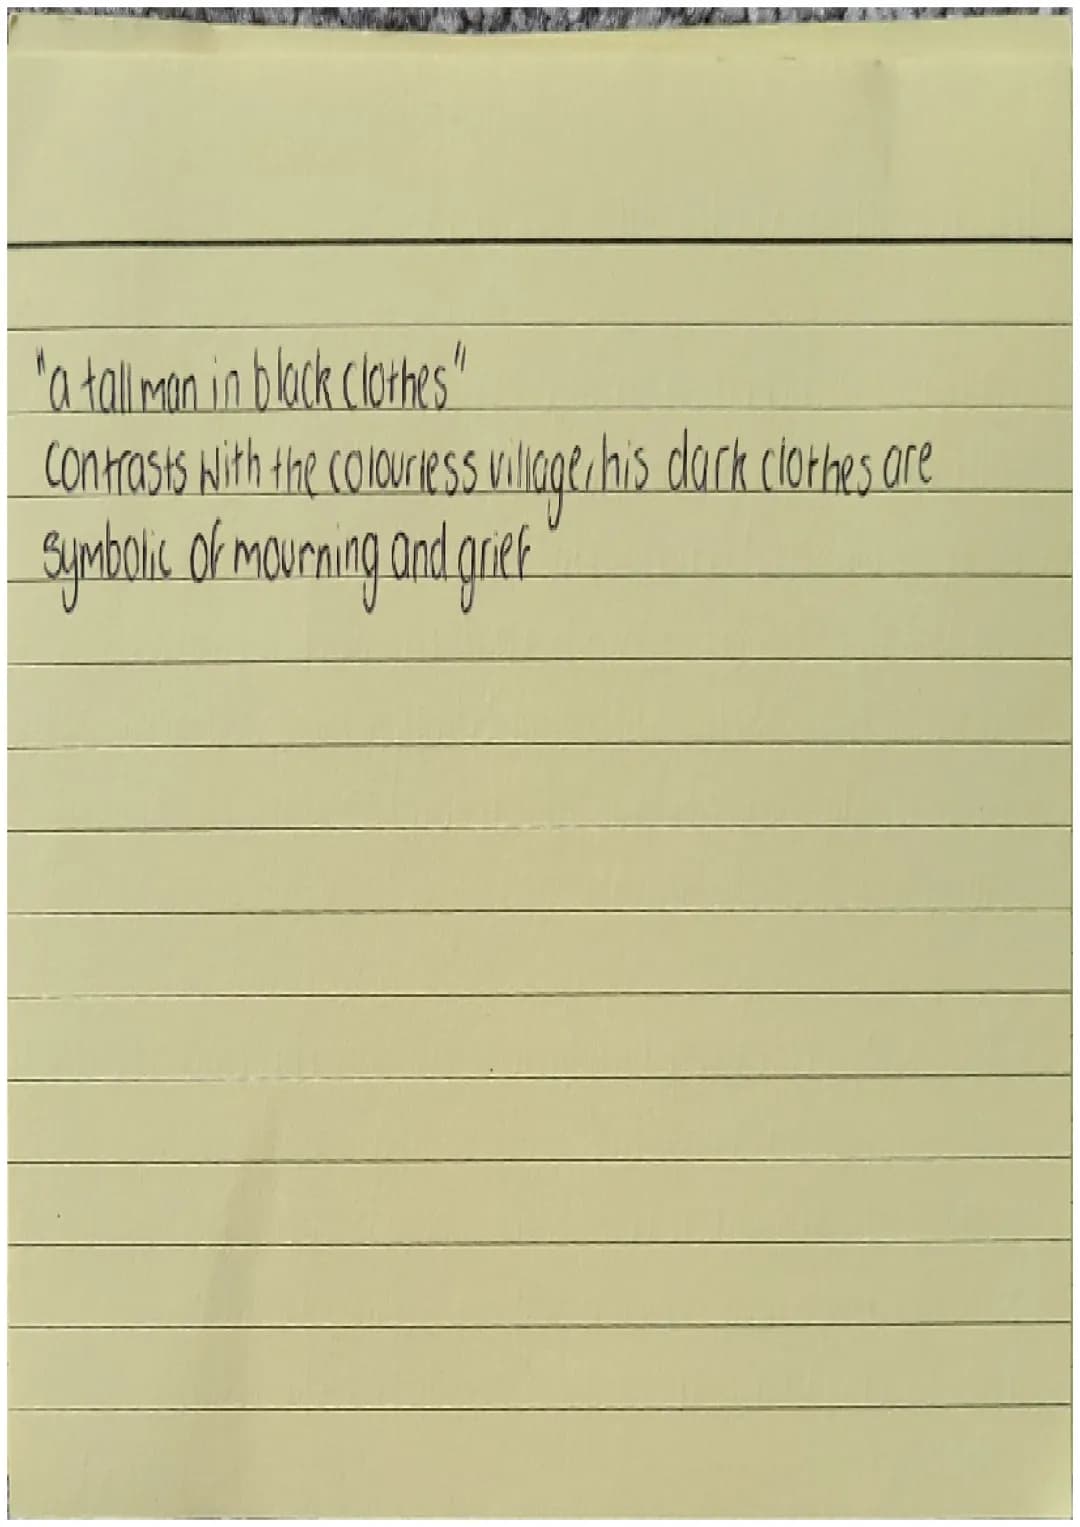 "a tall man in black clothes"
Contrasts with the colourless village, his dark clothes are
symbolic of mourning and grief